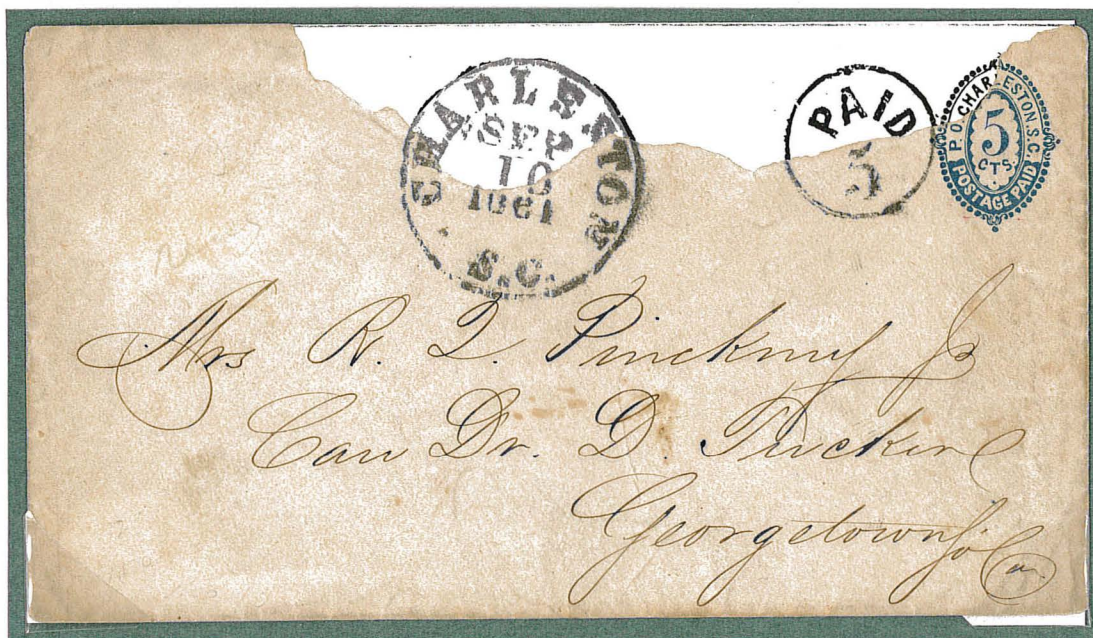 CHARLESTON
SEP
10
1861
S.C.
PAID
5
P.O. CHARLESTON. S.C.
5
CTS.
POSTAGE PAID
Mrs R. Q. Pinckney Jr
Care Dr. D. Tucker
Georgetown So Ca